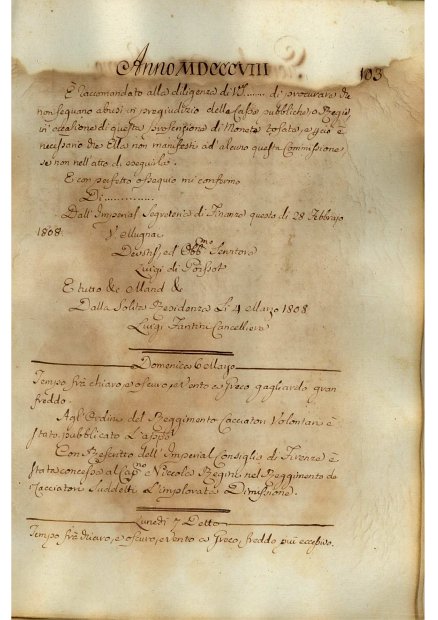 Anno MDCCCVIII 103
È raccomandato alla diligenza di VS....... di procurare che
non seguano abusi in pregiudizio delle Casse pubbliche, o Regie,
in occasione di questa profensione di Monete tosate, e perciò è
necessario che Ella non manifesti ad alcuno questa Commissione
se non nell'atto di eseguirla.
E con perfetto ossequio mi confermo
Di..............
Dall'Imperial Segreteria di Finanze questo dì 28 Febbrajo
1808. V ellugna
Devotiss. ed Obb.mo Servitore
Luigi di Poirot
E tutto &c Mand &c
Dalla Solita Residenza Lì 4 Marzo 1808
Luigi Fantini Cancelliere
Domenica 6 Marzo
Tempo frà chiaro, e oscuro, e Vento a Greco gagliardo gran
freddo.
Agl'Ordini del Reggimento Cacciatori Volontari è
stato pubblicato L'appo
Con Rescritto dell'Imperial Consiglio di Firenze è
stata concessa al Cap.no e Niccola Regini nel Reggimento de
Cacciatori Suddetti L'implorata Dimissione.
Lunedì 7 Detto
Tempo frà chiaro, e oscuro, e vento a Greco, freddo più eccessivo.